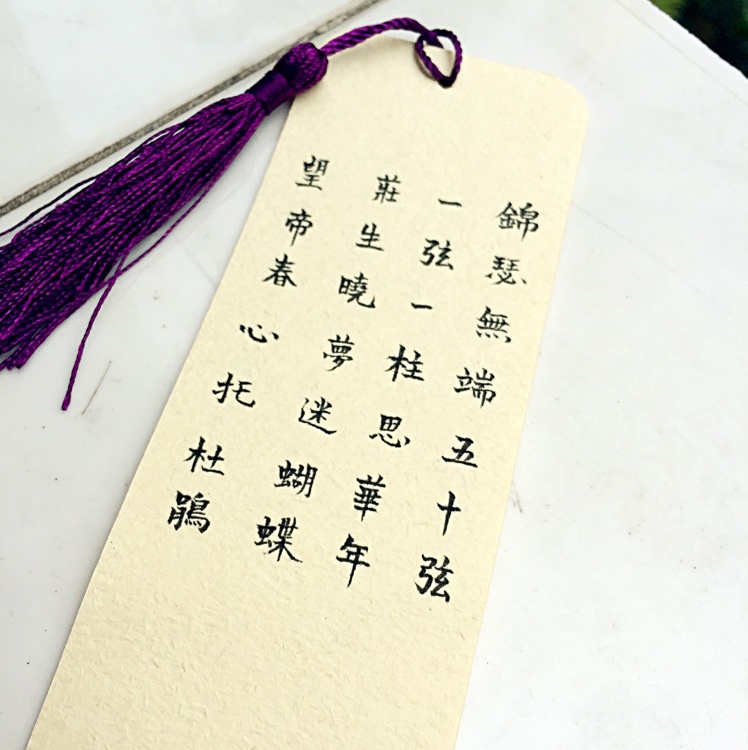 錦瑟無端五十弦
一弦一柱思華年
莊生曉夢迷蝴蝶
望帝春心托杜鵑